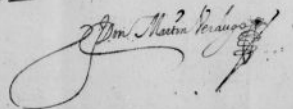 Don Martin Verdugo